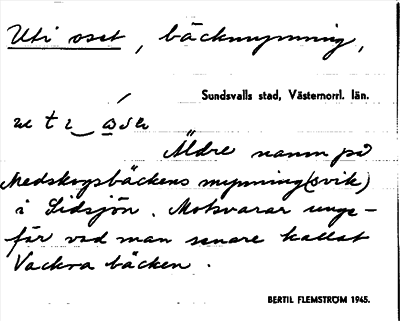 Uti oset, bäckmynning,
Sundsvalls stad, Västernorrl. län.
Äldre namn på
Medskogsbäckens mynning (svik)
i Sidsjön. Motsvarar unge-
fär vad man senare kallat
Vackra bäcken.
BERTIL FLEMSTRÖM 1945.